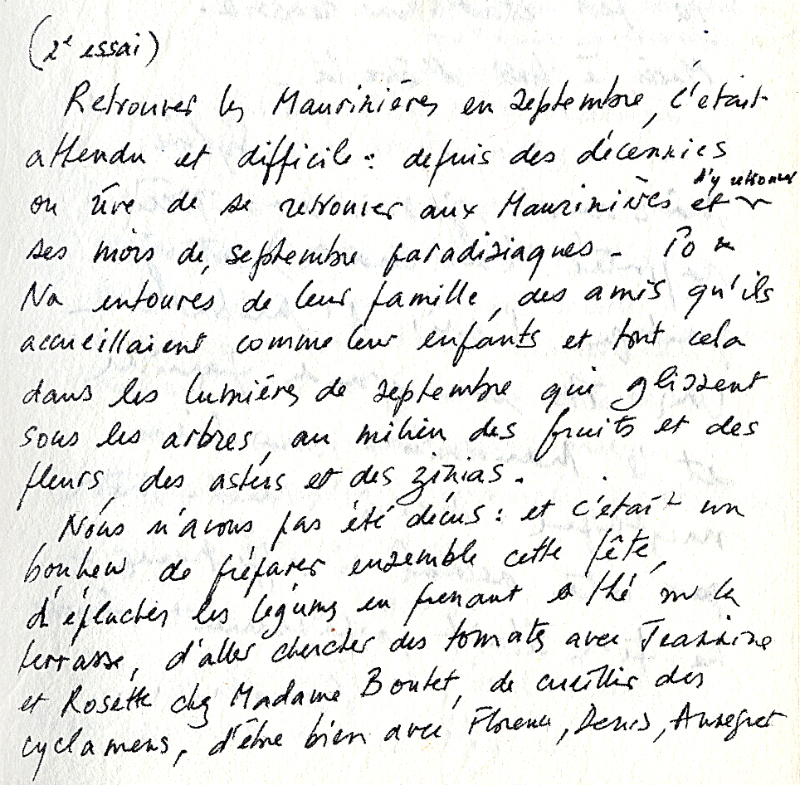 (2e essai)
Retrouver les Maurinières en septembre, c'était
attendu et difficile : depuis des décennies
on rêve de se retrouver aux Maurinières et d'y retrouver
ses mois de septembre paradisiaques - Po &
Na entourés de leur famille, des amis qu'ils
accueillaient comme leur enfants et tout cela
dans les lumières de septembre qui glissent
sous les arbres, au milieu des fruits et des
fleurs, des asters et des zinias.
Nous n'avons pas été décus : et c'était un
bonheur de préparer ensemble cette fête,
d'éplucher les légumes en prenant le thé sur la
terrasse, d'aller chercher des tomates avec Jeannine
et Rosette chez Madame Boutet, de cueillir des
cyclamens, d'être bien avec Florence, Denis, Annegret